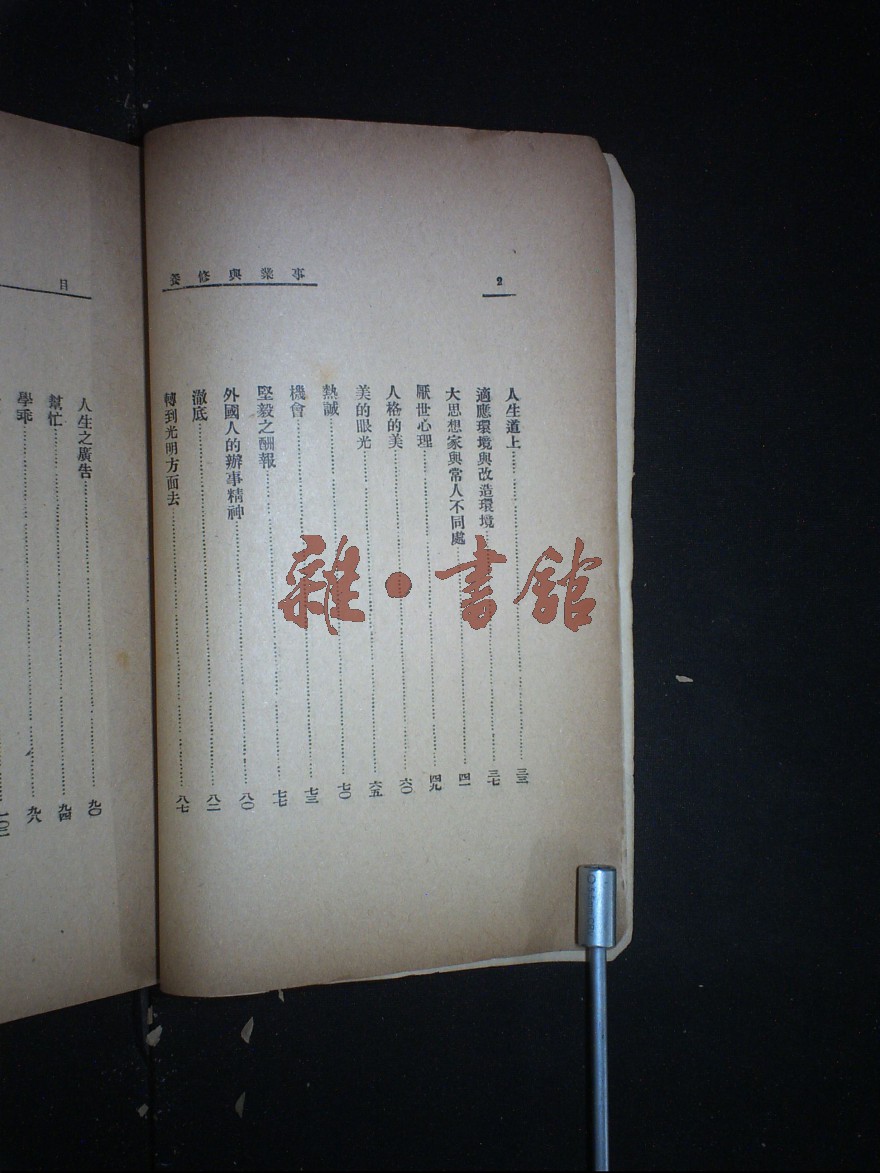 事業與修養
2
人生道上……三三
適應環境與改造環境……三七
大思想家與常人不同處……四一
厭世心理……四九
人格的美……六〇
美的眼光……六五
熱誠……七〇
機會……七三
堅毅之酬報……七七
外國人的辦事精神……八〇
澈底……八二
轉到光明方面去……八七
目
人生之廣告……九〇
幫忙……九四
學乖……九八
一〇二
雜·書館